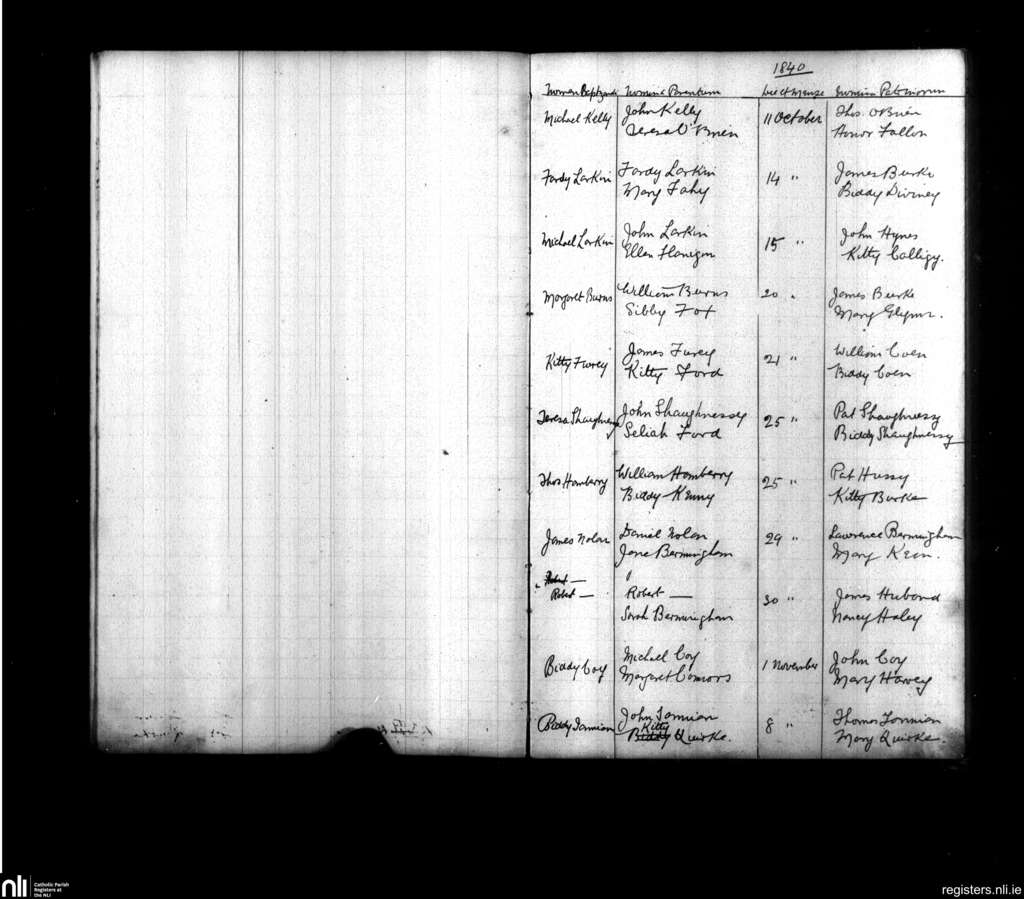 1840
Nomen Baptizandi Nomina Parentum Die et Mense Nomina Patrinorum
Michael Kelly John Kelly 11 October Thos. O Brien
Teresa O'Brien Honor Fallon
Fardy Larkin Fardy Larkin 14 " James Burke
Mary Fahy Biddy Diviney
Michael Larkin John Larkin 15 " John Hynes
Ellen Flanegan Kitty Calligy.
Margaret Burns William Burns 20 " James Burke
Sibby Fox Mary Glynn.
Kitty Furey James Furey 21 " William Coen
Kitty Ford Biddy Coen
Teresa Shaughnessy John Shaughnessy 25 " Pat Shaughnessy
Seliah Ford Biddy Shaughnessy
Thos Hamberry William Hamberry 25 " Pat Hussy
Biddy Kenny Kitty Burke
James Nolan Daniel Nolan 29 " Lawrence Bermingham
Jane Bermingham Mary
Robert —
Robert — Robert — 30 " James Huband
Sarah Bermingham Nancy Haley
Biddy Coy Michael Coy 1 November John Coy
Margaret Connors Mary Harvey
Biddy John 8 " Thomas
Kitty
Biddy Quirke. Mary Quirke.
nli Catholic Parish
Registers at
the NLI
registers.nli.ie